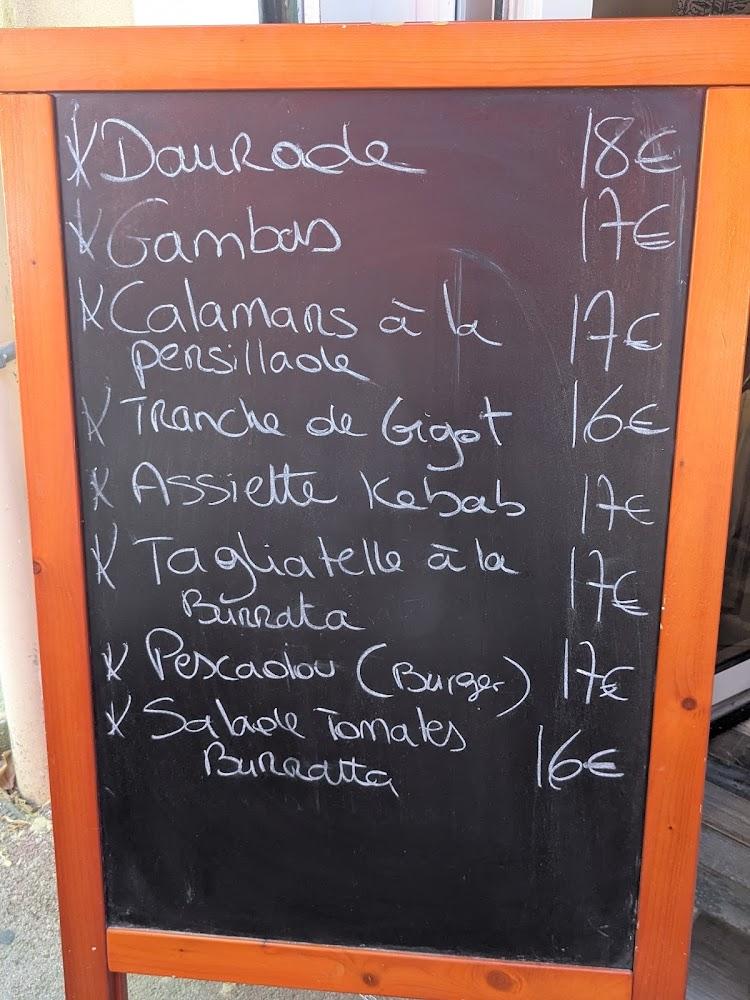 Daurade 18€
Gambas 17€
Calamars à la 17€
persillade
Tranche de Gigot 16€
Assiette Kebab 17€
Tagliatelle à la 17€
Burrata
Pescadou (Burger) 17€
Salade Tomates
Burratta 16€